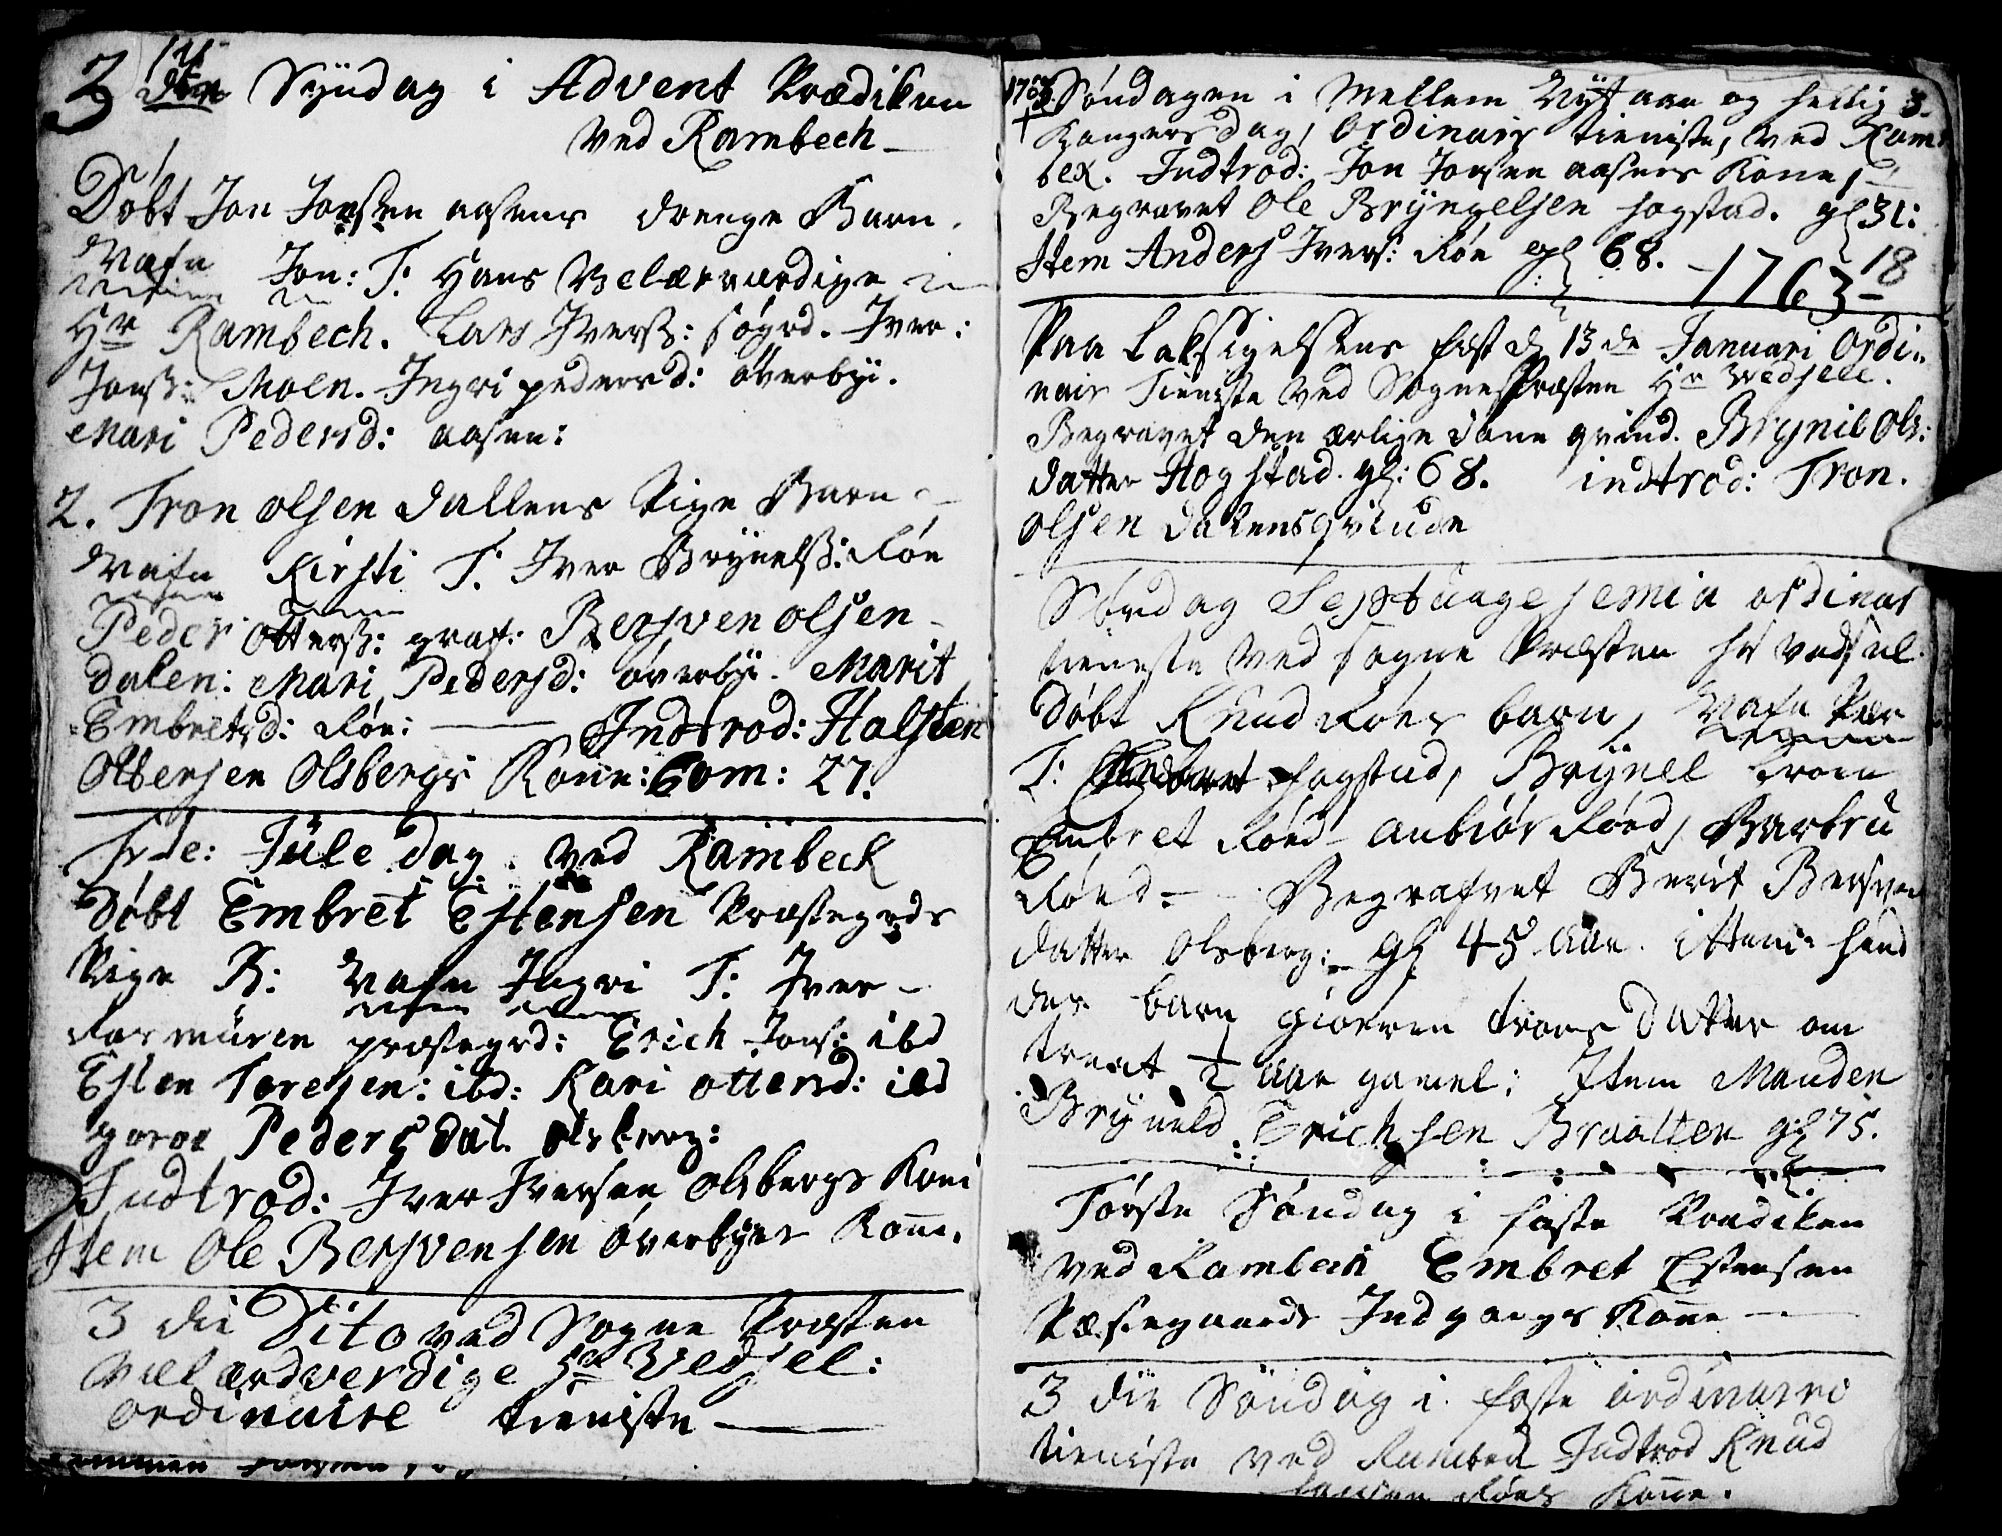 3 die Syndag i Advent Prædiken
ved Rambech
Døbt Jon Jonsen aasens drenge Barn.
Nafn Jon: T: Hans Velærværdige
Hr Rambech. Lars Iverss: søgrd. Iver:
Jonss: Moen. Ingri pedersd: øverbyi.
Mari Pedersd: aasen:
2. Tron olsen dallens Pige Barn
Nafn Kirsti T: Iver Brynelss: Røe
Peder Otterss: graf: Bersven olsen
dalen: Mari Pedersd: øverbyi. Marit
Embretsd: Røe: Indtrod: Halsten
Ottersen Olsbergs Kone: Com: 27.
Iste: Jule dag ved Rambeck
Døbt Embret Estensen Præstegrds
Pige B: Nafn Ingri T: Iver
præstegrd: Erich Jons: ibd
Esten Toresen: ibd: Kari otters d: ibd
goroe Peders dat. olsberg:
Indtrod: Iver Iversen olsbergs Kone
Item Ole Bersvensen øverbyes Kone.
3 die Dito ved Sogne Præsten
Vel ærdverdige Hr Wedsel:
ordinaire tieniste
1763 Søndagen i Mellem Nyt aar og hellig 3.
Kongers dag, ordinair tieniste, ved Ram
bex. Indtrod: Jon Jonsen aasens Kone,
Begravet Ole Bryngelsen hogstad. gl 31:
Item Anders Ivers: Røe gl 68. 18
1763
Paa Laksigelsens fest d 13de Januari Ordi-
nair Tieniste ved Sognepræsten Hr Wedsell.
Begravet den ærlige dane qvind. Brynil Ols:
datter Hogstad. gl: 68. indtrod: Tron.
Olsen dalens qvinde
Søndag Septuagesemia ordinar
tieneste ved sogne Præsten hr vedsel
Døbt Knud Røes barn, Nafn Peder
T: hogstad, Brynel
Embret Røed anbiør Røed, Barbru
Røed Begrafvet Berit Bersven
datter olsberg: gl 45 aar. ittem hend
des barn gioeren trons datter om
trent 1/2 aar gamel: Item Manden
Bryneld Erichsen Braatten gl 75.
Første Søndag i faste Prædiken
ved Rambech Embret Estensen
Præstegaards Indgangs Kone
3 die Søndag i faste ordinaire
tieniste ved Rambech Indtrod Knud
Røes Kone.